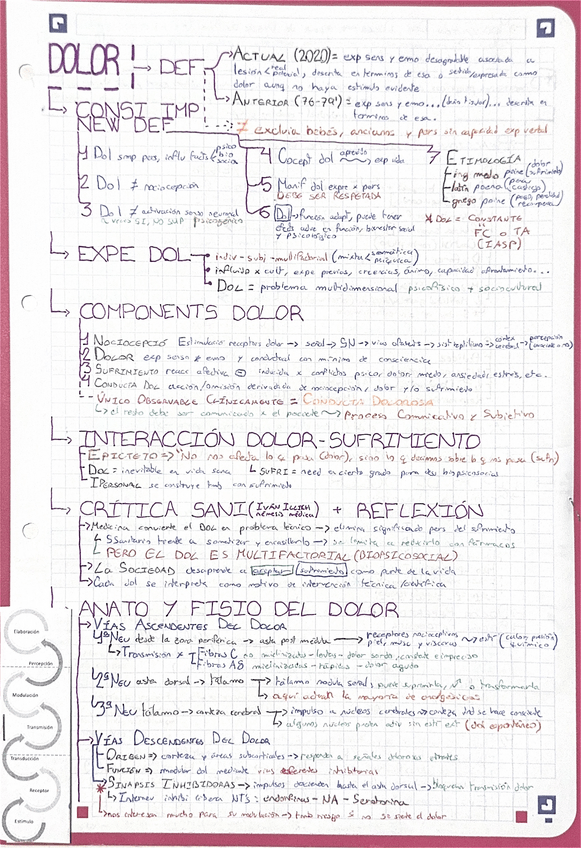 DOLOR → DEF
ACTUAL (2020) = exp sens y emo desagradable asociada a
lesión real potencial, descrita en términos de esa o
dolor aunq no haya estímulo evidente
ANTERIOR (76-79') = exp sens y emo... describe en
términos de esa...
≠ excluía bebés, ancianos y pers sin capacidad exp verbal
CONSI IMP
NEW DEF
1 Dol smp pers, influ facts psico bio socia
2 Dol ≠ nociocepción
3 Dol ≠ activación senso neuronal
4 Cocept dol aprendo exp vida
5 Manif dol expre x pers
DEBE SER RESPETADA
6 Dol → función adapt, puede tener
efecs adver en función, bienestar social
y psicológico
7 ETIMOLOGÍA
ing medo paine dolor sufrimiento
latín poena pena castigo
griego poine
* DOL = CONSTANTE
FC o TA
(IASP)
EXPE DOL
indiv - subj - multifactorial (mixta somática psíquica)
influido x cult, expe previas, creencias, ánimo, capacidad afrontamiento...
DOL = problema multidimensional psicofísico + sociocultural
COMPONENTS DOLOR
1 NOCIOCEPCIÓ Estimulacio receptors dolor → señal → SN → vías aferents → sist → cortex cerebral → percepción
2 DOLOR exp senso + emo y conductual con mínimo de consciencia
3 SUFRIMIENTO reacc afectiva ⊖ inducida x conflictos psico, dolor: miedo, ansiedad, estrés, etc.
4 CONDUCTA DOL acción/omisión derivada de nociocepción, dolor y/o sufrimiento
ÚNICO OBSERVABLE CLÍNICAMENTE = CONDUCTA DOLOROSA
el resto debe ser comunicado x el paciente → Proceso Comunicativo y Subjetivo
INTERACCIÓN DOLOR-SUFRIMIENTO
EPICTETO → "No nos afecta lo q pasa (dolor), sino lo q decimos sobre lo q nos pasa (sufri)
DOL = inevitable en vida sana
SUFRI = need en cierto grado para dev biopsicosoc
PERSONAL se construye tmb con sufrimiento
CRÍTICA SANI (IVÁN ILLICH némesis médica) + REFLEXIÓN
Medicina convierte el DOL en problema técnico → elimina significado pers del sufrimiento
SSanitario tiende a somatizar y encasillarlo → se limita a reducirlo con fármacos
PERO EL DOL ES MULTIFACTORIAL (BIOPSICOSOCIAL)
LA SOCIEDAD desaprende a aceptar sufrimiento como parte de la vida
Cada dol se interpreta como motivo de intervención técnica/científica
ANATO Y FISIO DEL DOLOR
VÍAS ASCENDENTES DEL DOLOR
1ª NEU desde la zona periférica → asta post medula → receptores nociceptivos piel, musc y vísceras → esti (calor, presión químico)
Transmisión x Fibras C no mielinizadas - lentas - dolor sordo, constate e impreciso
Fibras Aδ mielinizadas - rápidas - dolor agudo
2ª NEU asta dorsal → tálamo → tálamo modula señal, puede suprimirla, o transformarla
aquí actúan la mayoría de analgésicos
3ª NEU tálamo → corteza cerebral → impulso a nucleos cerebrales → corteza dnd se hace consciente
algunos nucleos pueden activ sin estí ext (dol espontáneo)
VÍAS DESCENDENTES DEL DOLOR
ORIGEN → corteza y áreas subcorticales → responde a señales dolorosas
FUNCIÓN → modular dol mediante vías eferentes inhibitorias
SINAPSIS INHIBIDORAS → impulsos descienden hasta el asta dorsal → bloquean transmisión dolor
Interneu inhibi libera NTS: endorfinas - NA - Serotonina
* nos interesan mucho para su modulación → tmb riesgo si no se siente el dolor
Elaboración
Percepción
Modulación
Transmisión
Transducción
Receptor
Estímulo